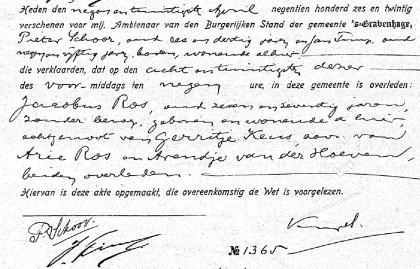 Heden den negenentwintigste April negentien honderd zes en twintig
verschenen voor mij, Ambtenaar van den Burgerlijken Stand der gemeente 's-Gravenhage,
Pieter Schoor, oud zes en dertig jaren en Jan
negen en vijftig jaren, boden, wonende alhier
die verklaarden, dat op den acht en twintigsten dezer
des voor middags ten negen ure, in deze gemeente is overleden:
Jacobus Ros, oud zeven en zeventig jaren,
zonder beroep, geboren en wonende alhier,
echtgenoot van Gerritje Keus, zoon van
Arie Ros en Arendje van der Hoeven
beiden overleden.
Hiervan is deze akte opgemaakt, die overeenkomstig de Wet is voorgelezen.
P. Schoor.
№ 1365